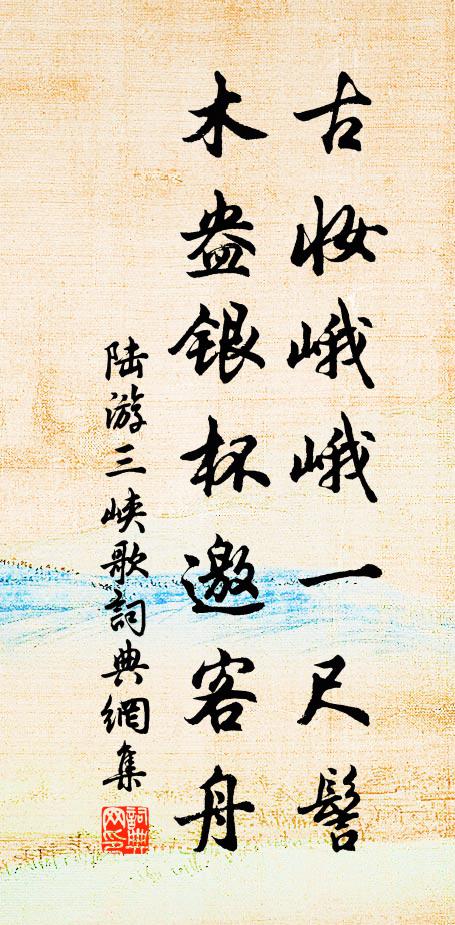 古妝峨峨一尺髻
木盎银杯邀客舟
陆游三峡歌詞典網集
詞典网印